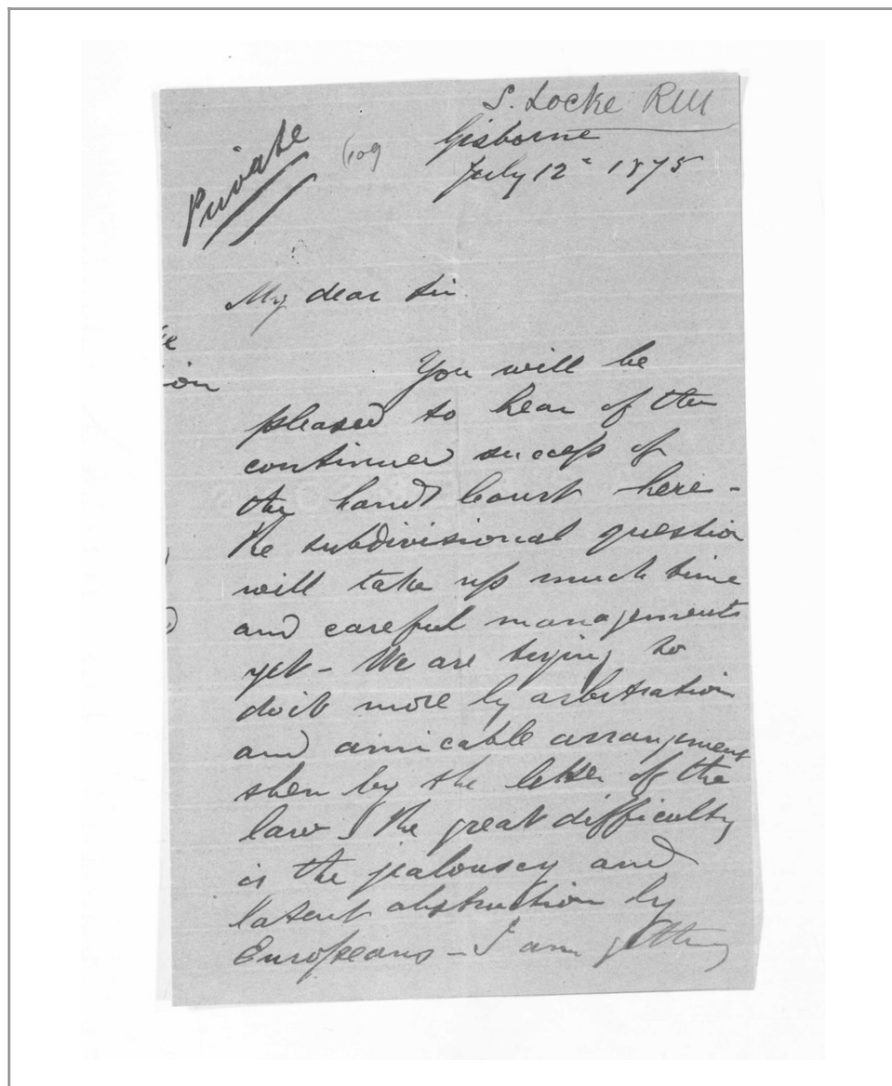 S. Locke RM
Private
(109
Gisborne
July 12th 1875
My dear Sir
You will be
pleased to hear of the
continued success of
the Land Court here -
the subdivisional question
will take up much time
and careful management
yet - We are trying to
do it more by arbitration
and amicable arrangement
then by the letter of the
law. The great difficulty
is the jealousy and
latent obstruction by
Europeans - I am getting